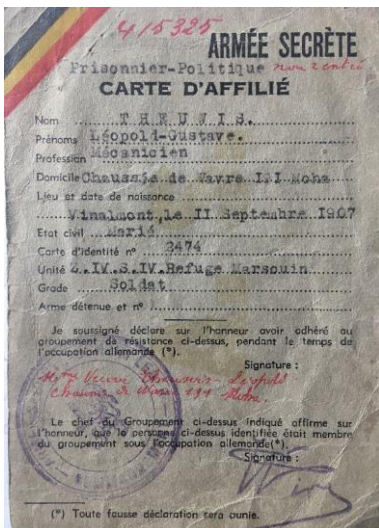 415325
ARMÉE SECRÈTE
Prisonnier-Politique non rentré
CARTE D'AFFILIÉ
Nom THEUNIS.
Prénoms Léopold-Gustave.
Profession Mécanicien
Domicile Chaussée de Wavre III Moha
Lieu et date de naissance
Vinalmont, le II Septembre I907
Etat civil Marié
Carte d'identité n° 2474
Unité 4.IV.S.IV.Refuge Marsouin
Grade Soldat
Arme détenue et n°
Je soussigné déclare sur l'honneur avoir adhéré au
groupement de résistance ci-dessus, pendant le temps de
l'occupation allemande (*).
Signature :
Veuve Theunis Léopold
Moha
Le chef du Groupement ci-dessus indiqué affirme sur
l'honneur, que la personne ci-dessus identifiée était membre
du groupement sous l'occupation allemande(*).
Signature :
(*) Toute fausse déclaration sera punie.